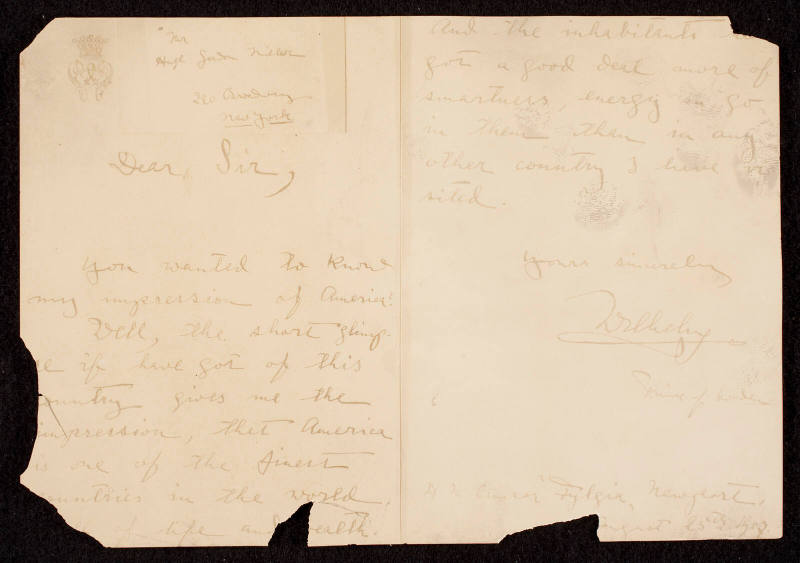 Mr
Hugh Gordon Miller
220 Broadway
New York
Dear Sir,
You wanted to know
my impression of America.
Well, the short glimp-
se if have got of this
country gives me the
impression, that America
is one of the finest
countries in the world,
of life and wealth.
And the inhabitants
got a good deal more of
smartness, energy
in them than in any
other country I have vi-
sited.
Yours sincerely,
Wilhelm
Prince of Sweden
Fylgia, Newport,
August 25th 1907.